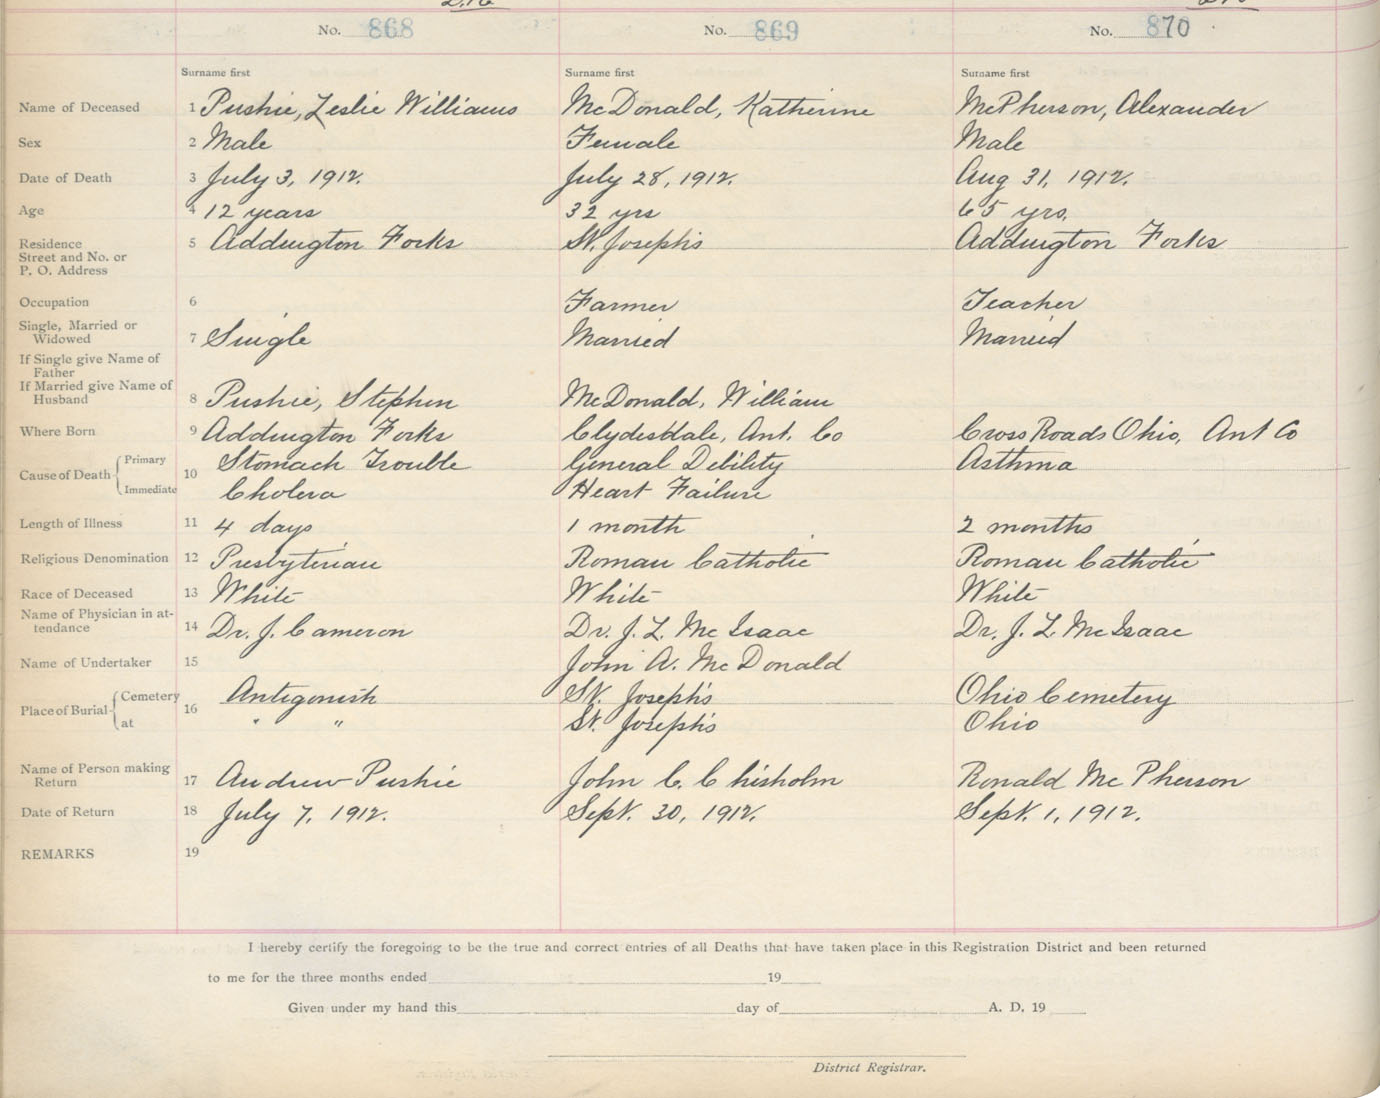 No. 868 No. 869 No. 870
Surname first Surname first Surname first
Name of Deceased 1 Pushie, Leslie Williams McDonald, Katherine McPherson, Alexander
Sex 2 Male Female Male
Date of Death 3 July 3, 1912. July 28, 1912. Aug 31, 1912.
Age 4 12 years 32 yrs 65 yrs.
Residence 5 Addington Forks St. Joseph's Addington Forks
Street and No. or
P. O. Address
Occupation 6 Farmer Teacher
Single, Married or
Widowed 7 Single Married Married
If Single give Name of
Father
If Married give Name of
Husband 8 Pushie, Stephen McDonald, William
Where Born 9 Addington Forks Clydesdale, Ant. Co Cross Roads Ohio, Ant Co
Cause of Death 10 Primary Stomach Trouble General Debility Asthma
Immediate Cholera Heart Failure
Length of Illness 11 4 days 1 month 2 months
Religious Denomination 12 Presbyterian Roman Catholic Roman Catholic
Race of Deceased 13 White White White
Name of Physician in at-
tendance 14 Dr. J. Cameron Dr. J. L. McIsaac Dr. J. L. McIsaac
Name of Undertaker 15 John A. McDonald
Place of Burial 16 Cemetery Antigonish St. Joseph's Ohio Cemetery
at " " St. Joseph's Ohio
Name of Person making
Return 17 Andrew Pushie John C. Chisholm Ronald McPherson
Date of Return 18 July 7, 1912. Sept. 30, 1912. Sept. 1, 1912.
REMARKS 19
I hereby certify the foregoing to be the true and correct entries of all Deaths that have taken place in this Registration District and been returned
to me for the three months ended 19
Given under my hand this day of A. D. 19
District Registrar.